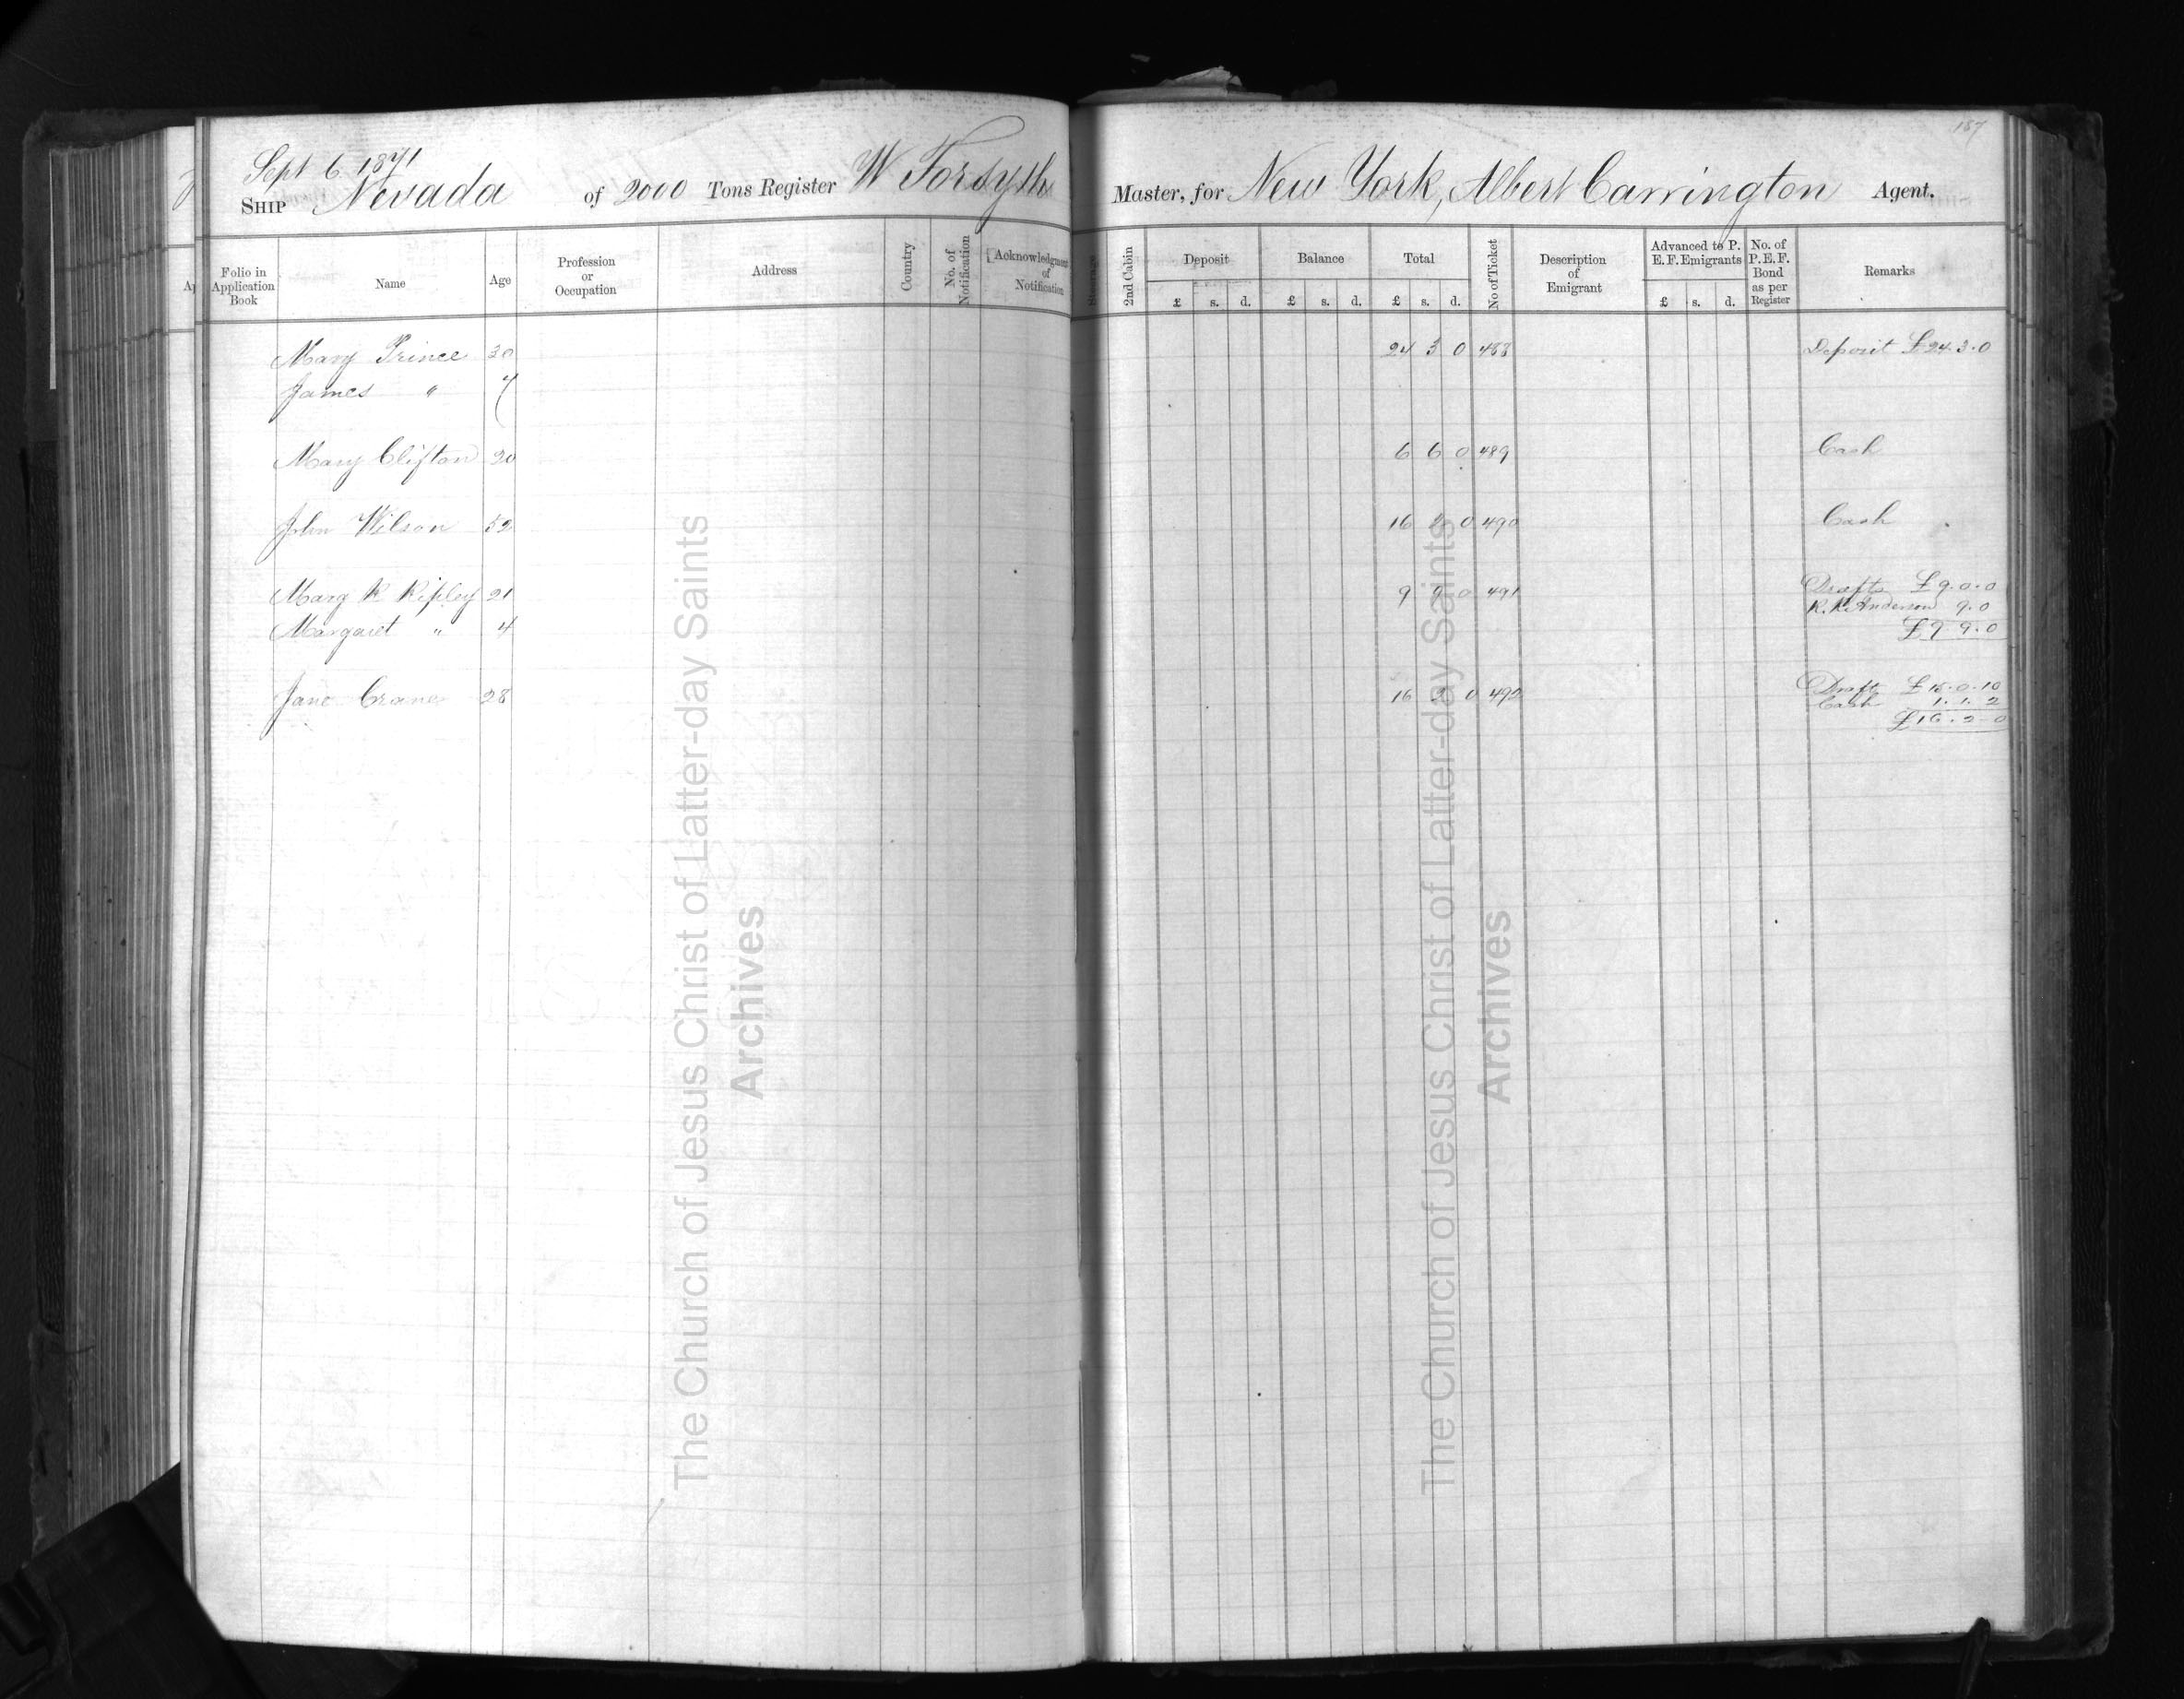 187
Sept 6 1871
SHIP Nevada of 2000 Tons Register W Forsyth Master, for New York, Albert Carrington Agent.
Folio in Application Book
Name
Age
Profession or Occupation
Address
Country
No. of Notification
Acknowledgment of Notification
Steerage
2nd Cabin
Deposit £ s. d.
Balance £ s. d.
Total £ s. d.
No of Ticket
Description of Emigrant
Advanced to P. E. F. Emigrants £ s. d.
No. of P. E. F. Bond as per Register
Remarks
Mary Prince 30 24 3 0 488 Deposit £24.3.0
James " 7
Mary Clifton 20 6 6 0 489 Cash
John Wilson 52 16 2 0 490 Cash
Mary R Ripley 21 9 9 0 491 Draft £9.0.0
R. R. Anderson 9.0
Margaret " 4 £9 9.0
Jane Crane 28 16 2 0 492 Draft £15.0.10
Cash 1.1.2
£16.2.0
The Church of Jesus Christ of Latter-day Saints
Archives
The Church of Jesus Christ of Latter-day Saints
Archives